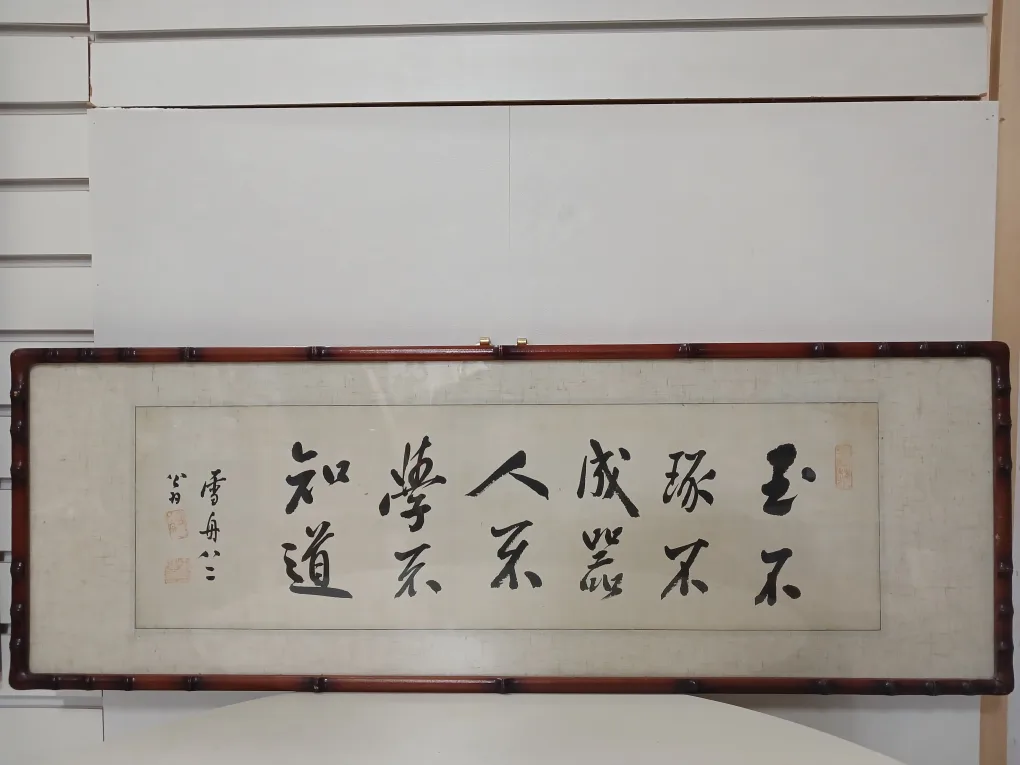 玉不
琢不
成器
人不
學不
知道
雪舟八二
公翁